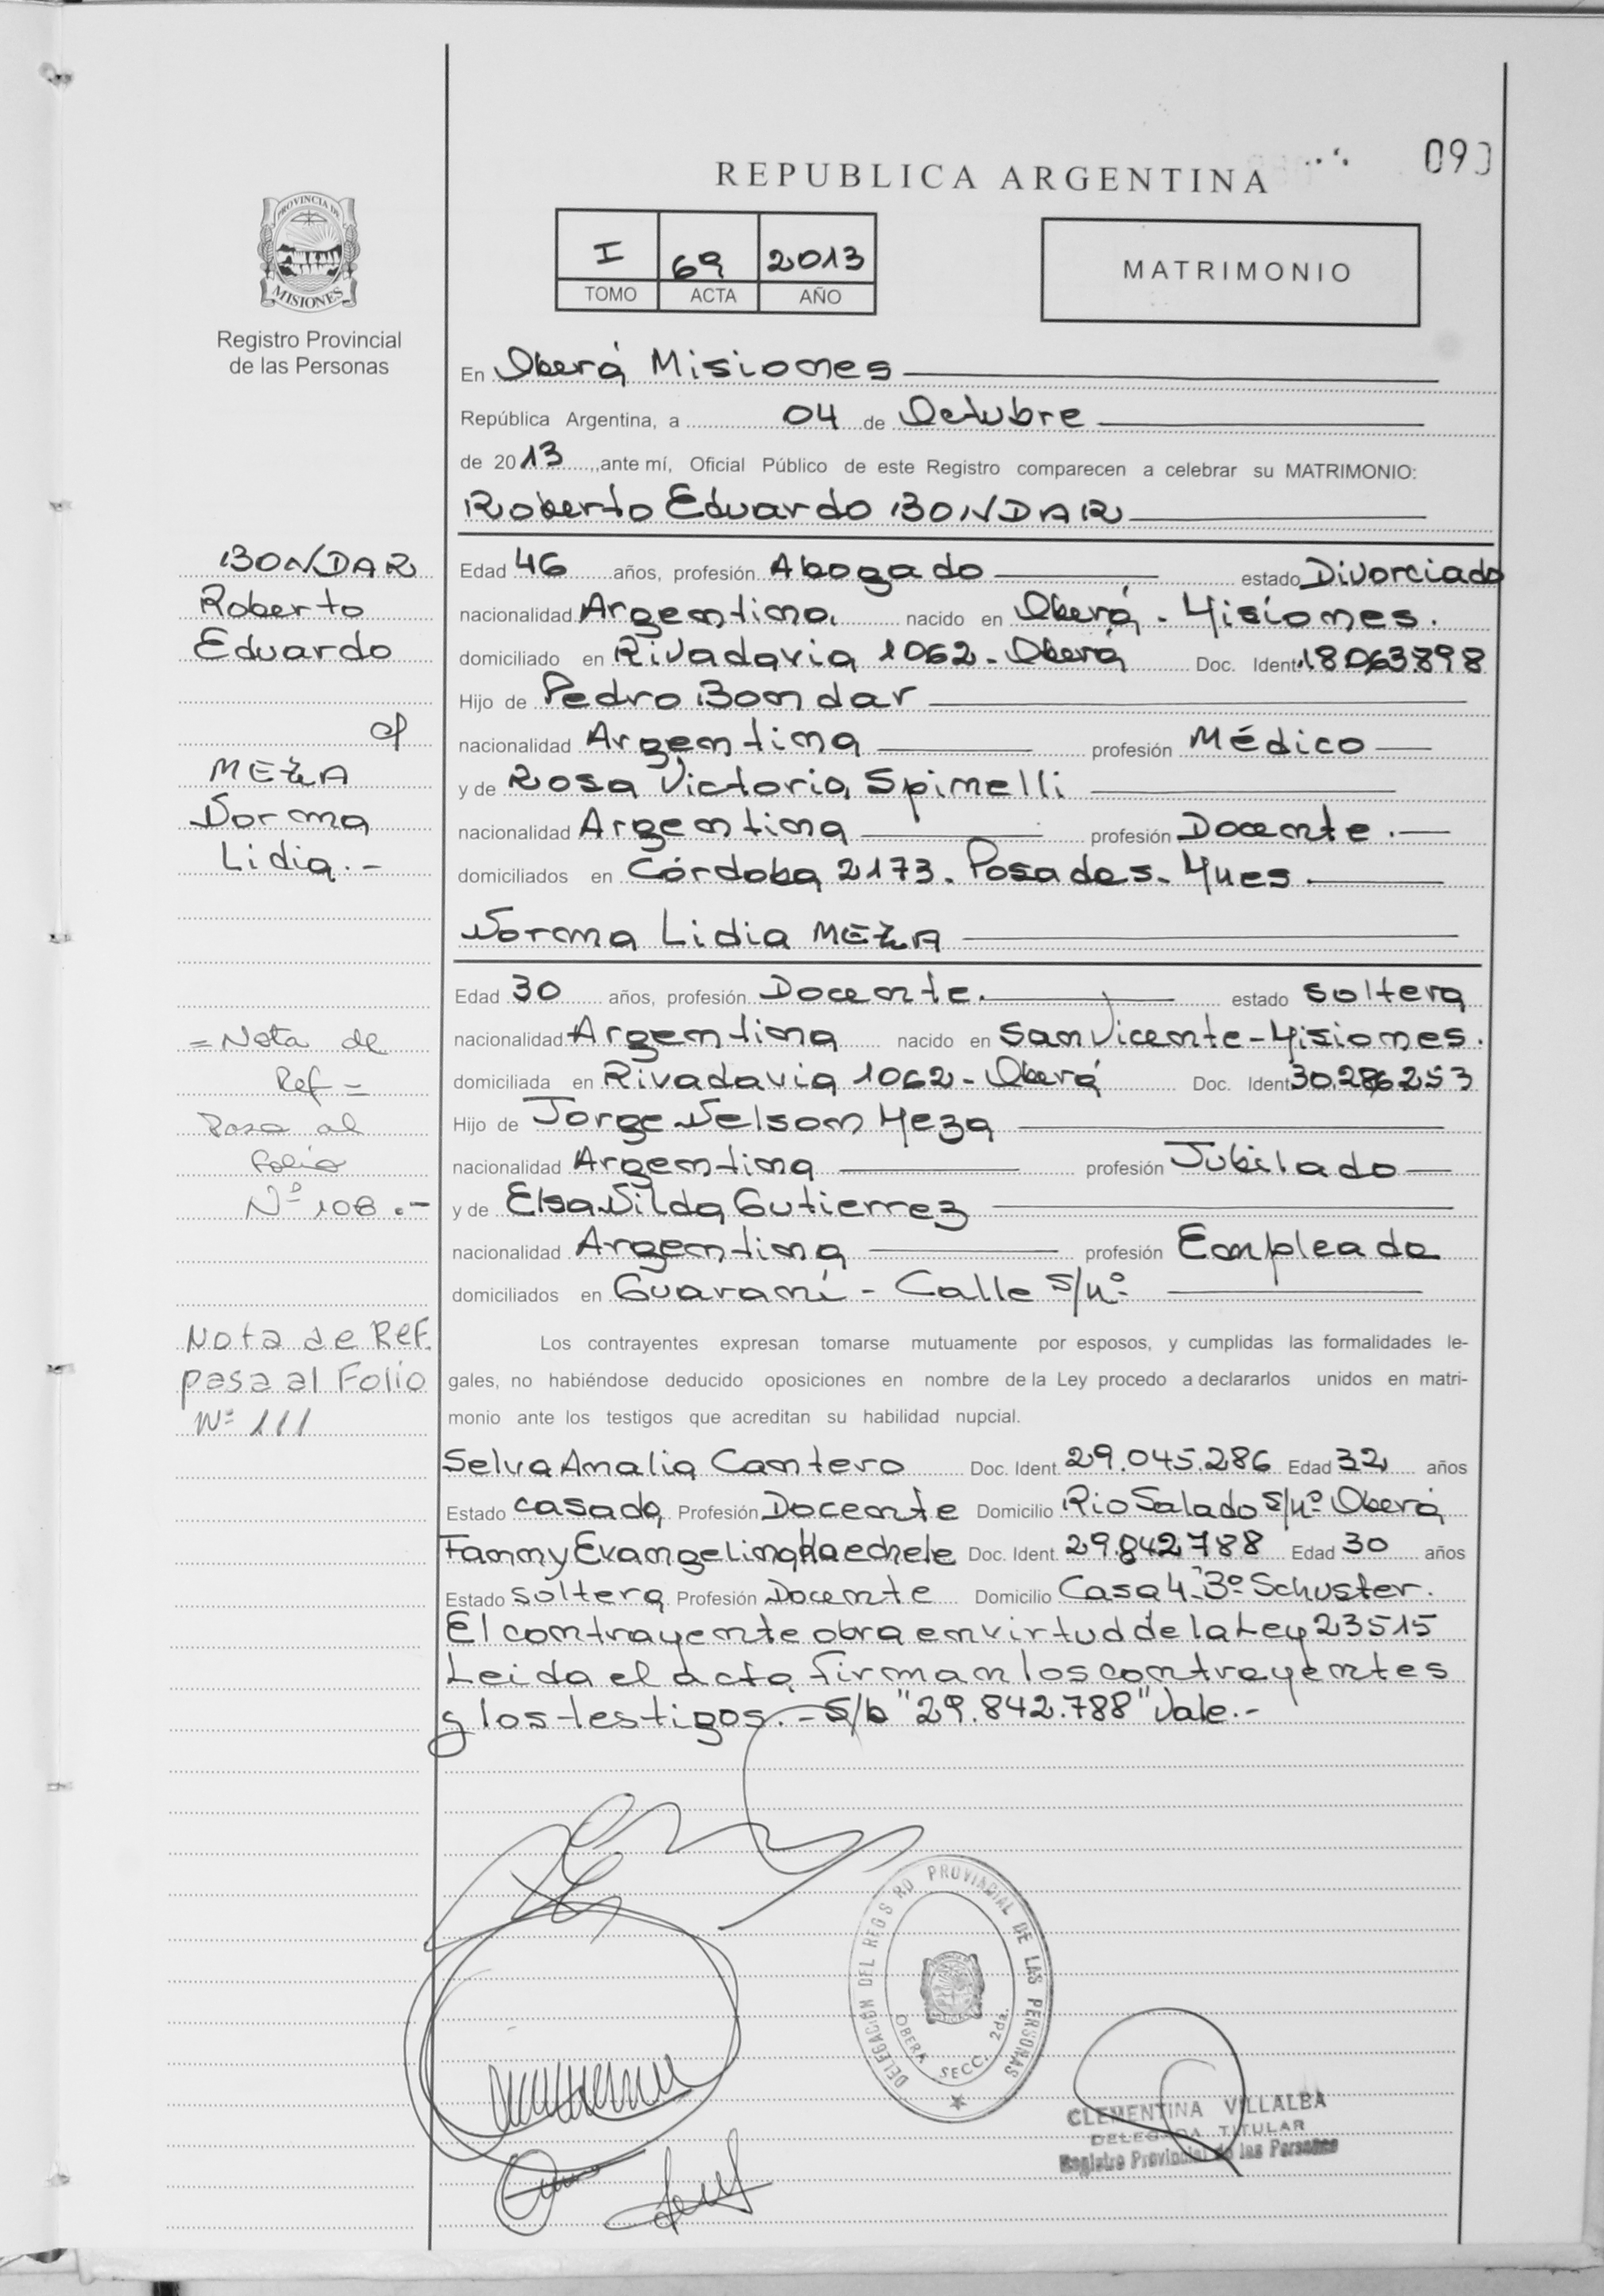 REPUBLICA ARGENTINA
I 69 2013
TOMO ACTA AÑO
MATRIMONIO
PROVINCIA DE
MISIONES
Registro Provincial
de las Personas
En Oberá Misiones
República Argentina, a 04 de Octubre
de 2013, ante mí, Oficial Público de este Registro comparecen a celebrar su MATRIMONIO:
Roberto Eduardo BONDAR
Edad 46 años, profesión Abogado estado Divorciado
nacionalidad Argentina nacido en Oberá - Misiones.
domiciliado en Rivadavia 1062 - Oberá Doc. Ident. 18.063.898
Hijo de Pedro Bondar
nacionalidad Argentina profesión Médico
y de Rosa Victoria Spinelli
nacionalidad Argentina profesión Docente.
domiciliados en Córdoba 2173 - Posadas - Mnes.
Norma Lidia MEZA
Edad 30 años, profesión Docente. estado soltera
nacionalidad Argentina nacido en San Vicente - Misiones.
domiciliada en Rivadavia 1062 - Oberá Doc. Ident. 30.286.253
Hijo de Jorge Nelson Meza
nacionalidad Argentina profesión Jubilado
y de Elsa Nilda Gutierrez
nacionalidad Argentina profesión Empleada
domiciliados en Guaraní - Calle s/nº
Los contrayentes expresan tomarse mutuamente por esposos, y cumplidas las formalidades le-
gales, no habiéndose deducido oposiciones en nombre de la Ley procedo a declararlos unidos en matri-
monio ante los testigos que acreditan su habilidad nupcial.
Selva Amalia Cantero Doc. Ident. 29.045.286 Edad 32 años
Estado casada Profesión Docente Domicilio Rio Salado s/nº Oberá
Fanny Evangelina Haechele Doc. Ident. 29.842.788 Edad 30 años
Estado soltera Profesión Docente Domicilio Casa 4 Bº Schuster.
El contrayente obra en virtud de la Ley 23515
Leida el acta firman los contrayentes
y los testigos. - S/b "29.842.788" Vale.-
BONDAR
Roberto
Eduardo
c/
MEZA
Norma
Lidia.-
= Nota de
Ref =
Pasa al
folio
Nº 108.-
Nota de Ref.
pasa al Folio
Nº 111
DELEGACIÓN DEL REGISTRO PROVINCIAL DE LAS PERSONAS
OBERA SECC. 2da.
CLEMENTINA VILLALBA
DELEGADA TITULAR
Registro Provincial de las Personas